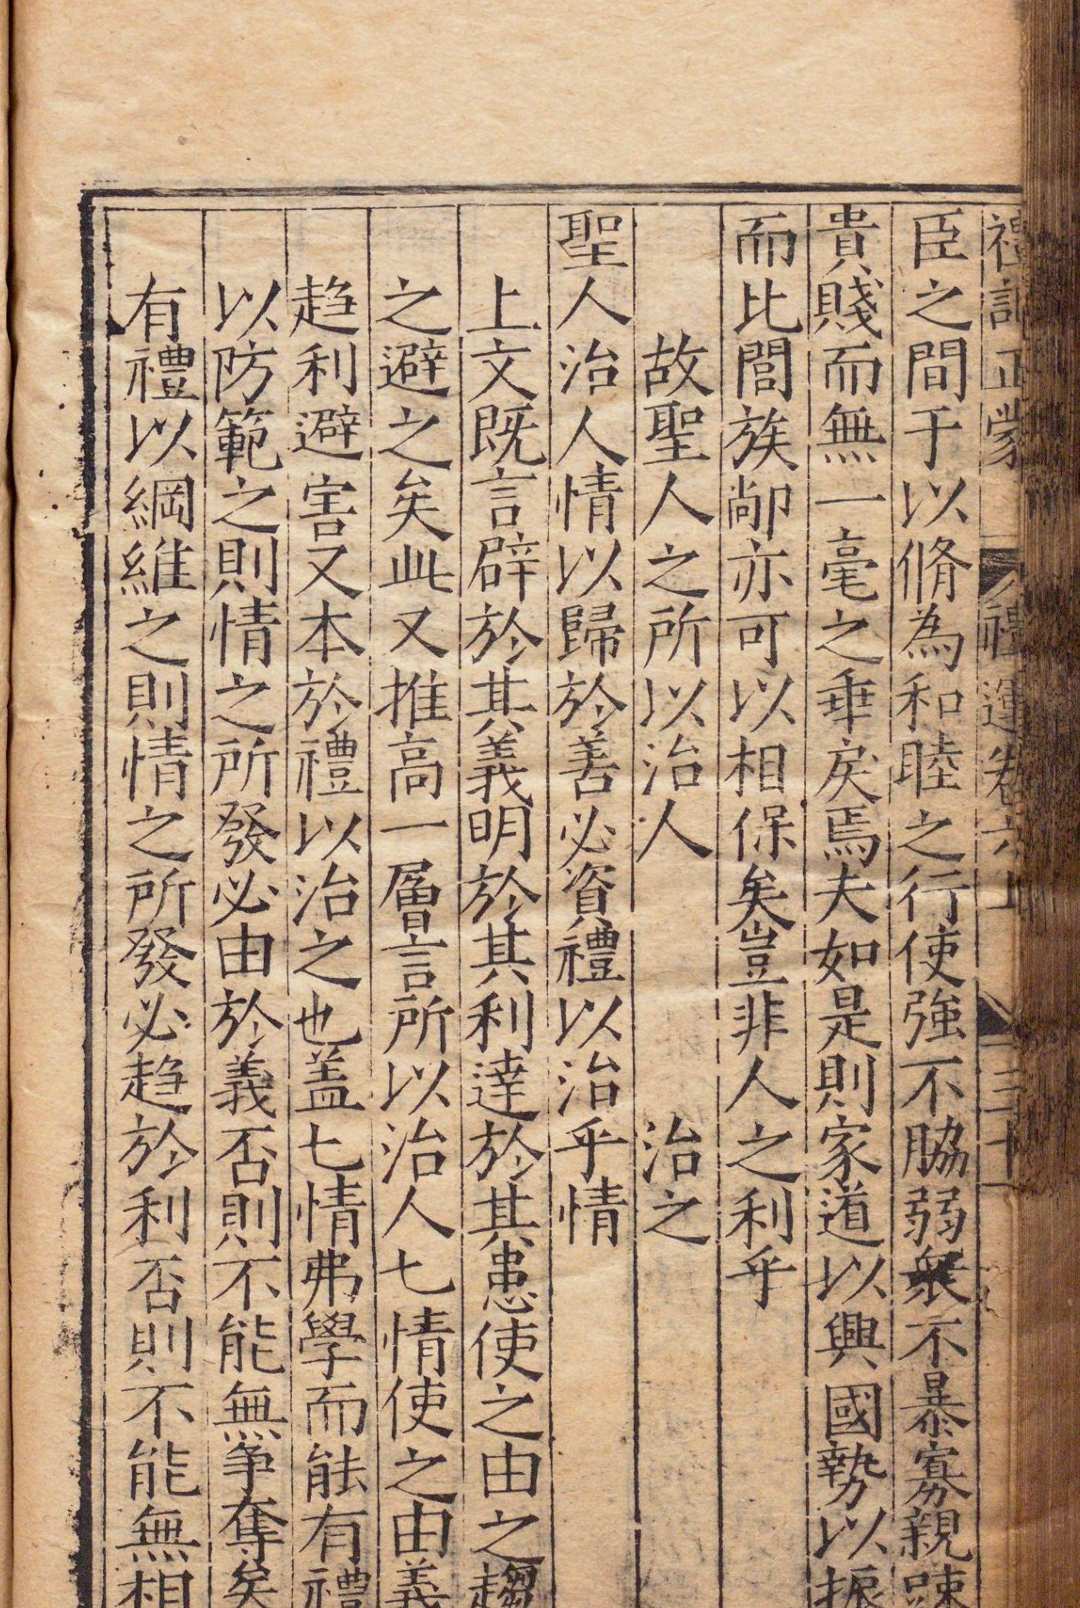 禮記正蒙 禮運卷六上 三十一
臣之間于以脩為和睦之行使強不脇弱衆不暴寡親疎
貴賤而無一毫之乖戾焉夫如是則家道以興國勢以振
而比閭族鄰亦可以相保矣豈非人之利乎
故聖人之所以治人 治之
聖人治人情以歸於善必資禮以治乎情
上文既言辟於其義明於其利達於其患使之由之趨
之避之矣此又推高一層言所以治人七情使之由義
趋利避害又本於禮以治之也盖七情弗學而能有禮
以防範之則情之所發必由於義否則不能無争奪矣
有禮以綱維之則情之所發必趋於利否則不能無相